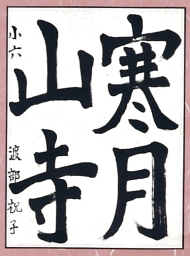 寒月
山寺
小六 渡部祝子